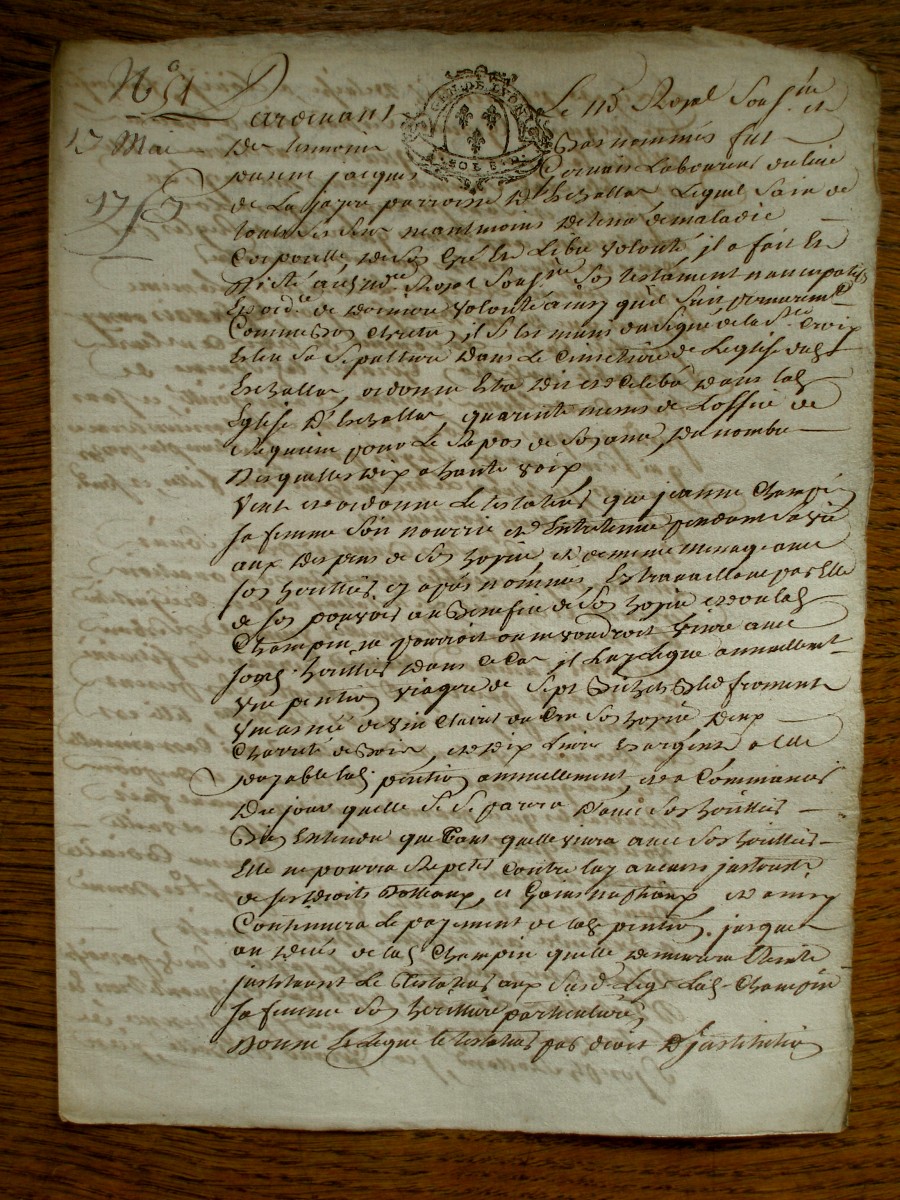 N° 51
17 Mai
GEN. DE LYON
SOL 8 D
Pardevant Le No.re Royal Sous.ne et
De tesmoins Bas nommés fut
jeanne jacques Gervais Laboureur du lieu
de La parroisse D'Echallas Lequel sain de
tous ses sens neantmoins Detenu de maladie
Corporelle De son Gré et Libre volonté, il a fait et
Dicté aud. No.re Royal Sous.ne Son testament noncupatif
Et ord.ce de Derniere volonté ainsy qu'il suit premierem.t
Comme Bon Chretien il s'est muni du signe de la S.te Croix
Eslu sa sepulture Dans Le Cimetière de L'eglise dud.
Echallas, ordonne Estre Dit et Celebré Dans lad.
Eglise D'Echallas, quarente messes de L'office de
Requiem pour Le Repos de son ame, Du nombre
Desquelles Dix a haute voix
Veut et ordonne Le testateur que jeanne Champin
sa femme soit nourrie et Entretenue pendant sa vie
aux Depens de son hoyrie et de meme menage avec
ses heritiers cy après nommés, En travaillant par Elle
de son pouvoir au Benefice de Son hoyrie et ou lad.
Champin ne pourroit ou ne voudroit Vivre avec
sond. heritier Dans ce Cas il Luy Legue annuellem.t
Une pention viagere de Sept Bichets Bled froment
Une année de vin Clairet du Cru Son hoyrie Deux
Charretées de Bois, et Dix Livres En argent a elle
payable lad. pention annuellement et a Commencer
Du jour quelle se separera D'avec Son heritier
Bien Entendu que Tant quelle vivra avec Son heritier
Elle ne pourra Repeter Contre luy aucuns
de ses Droits Dotaux, et Gains nuptiaux, et ainsy
Continuera Le payement de lad. pention jusque
au Decès de lad. Champin quelle Demeurera Eteinte
jnstituant Le Testateur aux Susd. Legs Lad. Champin
sa femme Son heritière particulière
Donne Et Legue Le testateur par droit D'jnstitution